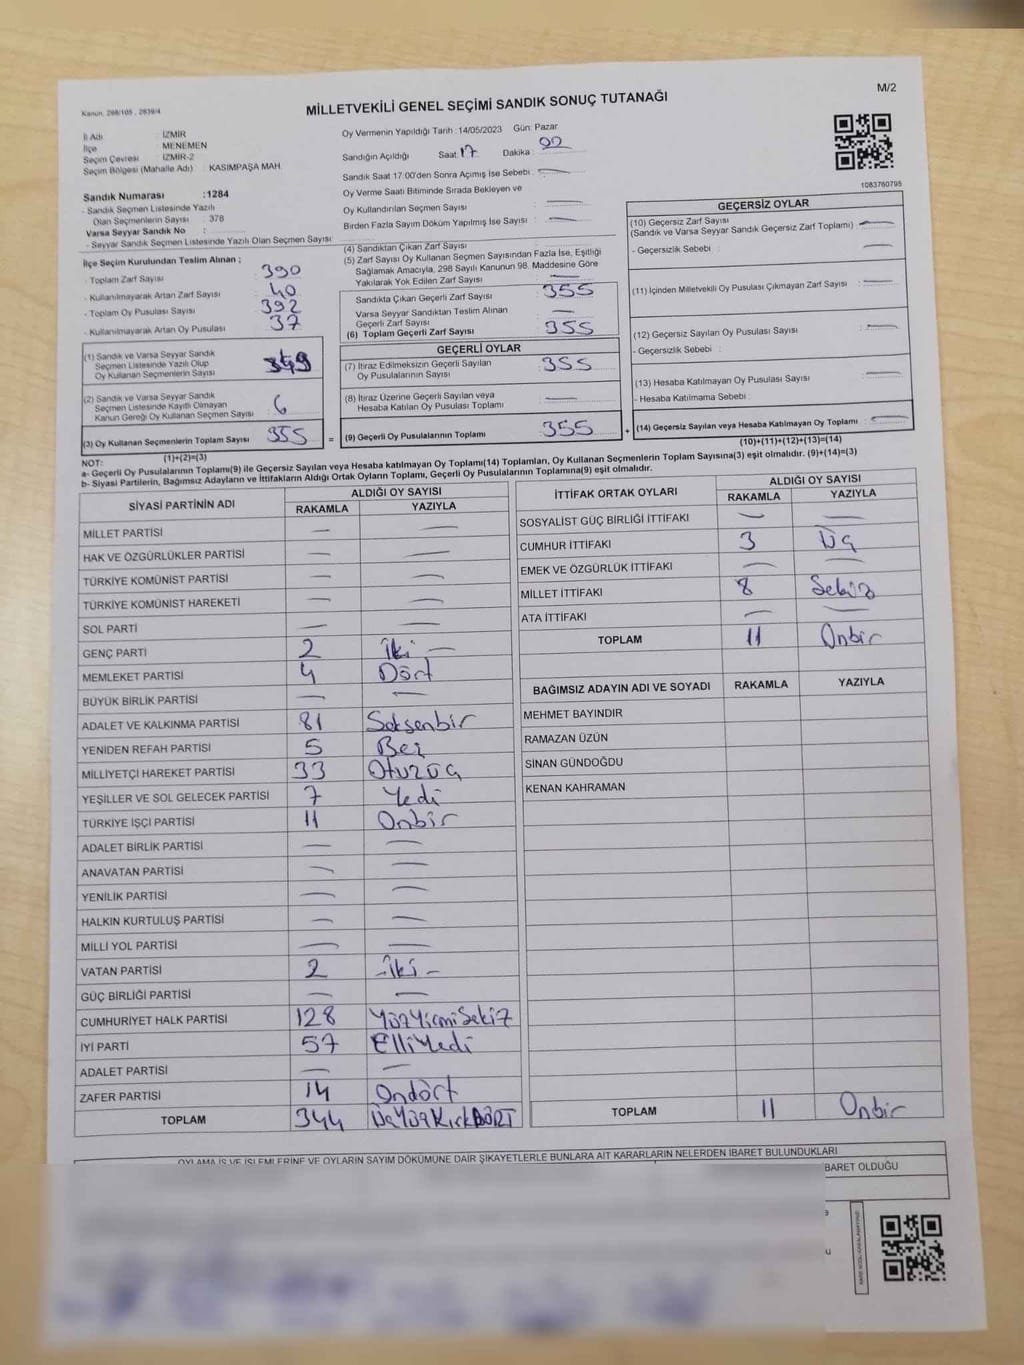 Kanun. 298/105 . 2839/4
MİLLETVEKİLİ GENEL SEÇİMİ SANDIK SONUÇ TUTANAĞI
M/2
İl Adı : İZMİR
İlçe : MENEMEN
Seçim Çevresi : İZMİR-2
Seçim Bölgesi (Mahalle Adı) : KASIMPAŞA MAH
Sandık Numarası : 1284
- Sandık Seçmen Listesinde Yazılı
Olan Seçmenlerin Sayısı : 378
Varsa Seyyar Sandık No :
- Seyyar Sandık Listesinde Yazılı Olan Seçmen Sayısı:
Oy Vermenin Yapıldığı Tarih : 14/05/2023 Gün: Pazar
Sandığın Açıldığı Saat: 17 Dakika:
Sandık Saat 17:00'den Sonra Açımış İse Sebebi : —
Oy Verme Saati Bitiminde Sırada Bekleyen ve
Oy Kullandırılan Seçmen Sayısı —
Birden Fazla Sayım Döküm Yapılmış İse Sayısı : —
1083760795
İlçe Seçim Kurulundan Teslim Alınan ;
- Toplam Zarf Sayısı 390
- Kullanılmayarak Artan Zarf Sayısı 40
- Toplam Oy Pusulası Sayısı 392
- Kullanılmayarak Artan Oy Pusulası 37
(1) Sandık ve Varsa Seyyar Sandık
Seçmen Listesinde Yazılı Olup
Oy Kullanan Seçmenlerin Sayısı 349
(2) Sandık ve Varsa Seyyar Sandık
Seçmen Listesinde Kayıtlı Olmayan
Kanun Gereği Oy Kullanan Seçmen Sayısı 6
(3) Oy Kullanan Seçmenlerin Toplam Sayısı 355
(1)+(2)=(3)
(4) Sandıktan Çıkan Zarf Sayısı
(5) Zarf Sayısı Oy Kullanan Seçmen Sayısından Fazla İse, Eşitliği
Sağlamak Amacıyla, 298 Sayılı Kanunun 98. Maddesine Göre
Yakılarak Yok Edilen Zarf Sayısı —
Sandıkta Çıkan Geçerli Zarf Sayısı 355
Varsa Seyyar Sandıktan Teslim Alınan
Geçerli Zarf Sayısı —
(6) Toplam Geçerli Zarf Sayısı 355
GEÇERLİ OYLAR
(7) İtiraz Edilmeksizin Geçerli Sayılan
Oy Pusulalarının Sayısı 355
(8) İtiraz Üzerine Geçerli Sayılan veya
Hesaba Katılan Oy Pusulası Toplamı —
= (9) Geçerli Oy Pusulalarının Toplamı 355 +
GEÇERSİZ OYLAR
(10) Geçersiz Zarf Sayısı
(Sandık ve Varsa Seyyar Sandık Geçersiz Zarf Toplamı) : —
- Geçersizlik Sebebi : —
(11) İçinden Milletvekili Oy Pusulası Çıkmayan Zarf Sayısı : —
(12) Geçersiz Sayılan Oy Pusulası Sayısı : —
- Geçersizlik Sebebi :
(13) Hesaba Katılmayan Oy Pusulası Sayısı : —
- Hesaba Katılmama Sebebi :
(14) Geçersiz Sayılan veya Hesaba Katılmayan Oy Toplamı : —
(10)+(11)+(12)+(13)=(14)
NOT:
a- Geçerli Oy Pusulalarının Toplamı(9) ile Geçersiz Sayılan veya Hesaba katılmayan Oy Toplamı(14) Toplamları, Oy Kullanan Seçmenlerin Toplam Sayısına(3) eşit olmalıdır. (9)+(14)=(3)
b- Siyasi Partilerin, Bağımsız Adayların ve İttifakların Aldığı Ortak Oyların Toplamı, Geçerli Oy Pusulalarının Toplamına(9) eşit olmalıdır.
SİYASİ PARTİNİN ADI ALDIĞI OY SAYISI
RAKAMLA YAZIYLA
MİLLET PARTİSİ — —
HAK VE ÖZGÜRLÜKLER PARTİSİ — —
TÜRKİYE KOMÜNİST PARTİSİ — —
TÜRKİYE KOMÜNİST HAREKETİ — —
SOL PARTİ — —
GENÇ PARTİ 2 İki —
MEMLEKET PARTİSİ 4 Dört
BÜYÜK BİRLİK PARTİSİ — —
ADALET VE KALKINMA PARTİSİ 81 Seksenbir
YENİDEN REFAH PARTİSİ 5 Beş
MİLLİYETÇİ HAREKET PARTİSİ 33 Otuzüç
YEŞİLLER VE SOL GELECEK PARTİSİ 7 Yedi
TÜRKİYE İŞÇİ PARTİSİ 11 Onbir
ADALET BİRLİK PARTİSİ — —
ANAVATAN PARTİSİ — —
YENİLİK PARTİSİ — —
HALKIN KURTULUŞ PARTİSİ — —
MİLLİ YOL PARTİSİ — —
VATAN PARTİSİ 2 -İki-
GÜÇ BİRLİĞİ PARTİSİ — —
CUMHURİYET HALK PARTİSİ 128 YüzYirmiSekiz
İYİ PARTİ 57 ElliYedi
ADALET PARTİSİ — —
ZAFER PARTİSİ 14 Ondört
TOPLAM 344 ÜçYüzKırkDÖRT
İTTİFAK ORTAK OYLARI ALDIĞI OY SAYISI
RAKAMLA YAZIYLA
SOSYALİST GÜÇ BİRLİĞİ İTTİFAKI — —
CUMHUR İTTİFAKI 3 Üç
EMEK VE ÖZGÜRLÜK İTTİFAKI — —
MİLLET İTTİFAKI 8 Sekiz
ATA İTTİFAKI — —
TOPLAM 11 Onbir
BAĞIMSIZ ADAYIN ADI VE SOYADI RAKAMLA YAZIYLA
MEHMET BAYINDIR
RAMAZAN ÜZÜN
SİNAN GÜNDOĞDU
KENAN KAHRAMAN
TOPLAM 11 Onbir
OYLAMA İŞ VE İŞLEMLERİNE VE OYLARIN SAYIM DÖKÜMÜNE DAİR ŞİKAYETLERLE BUNLARA AİT KARARLARIN NELERDEN İBARET BULUNDUKLARI
BARET OLDUĞU